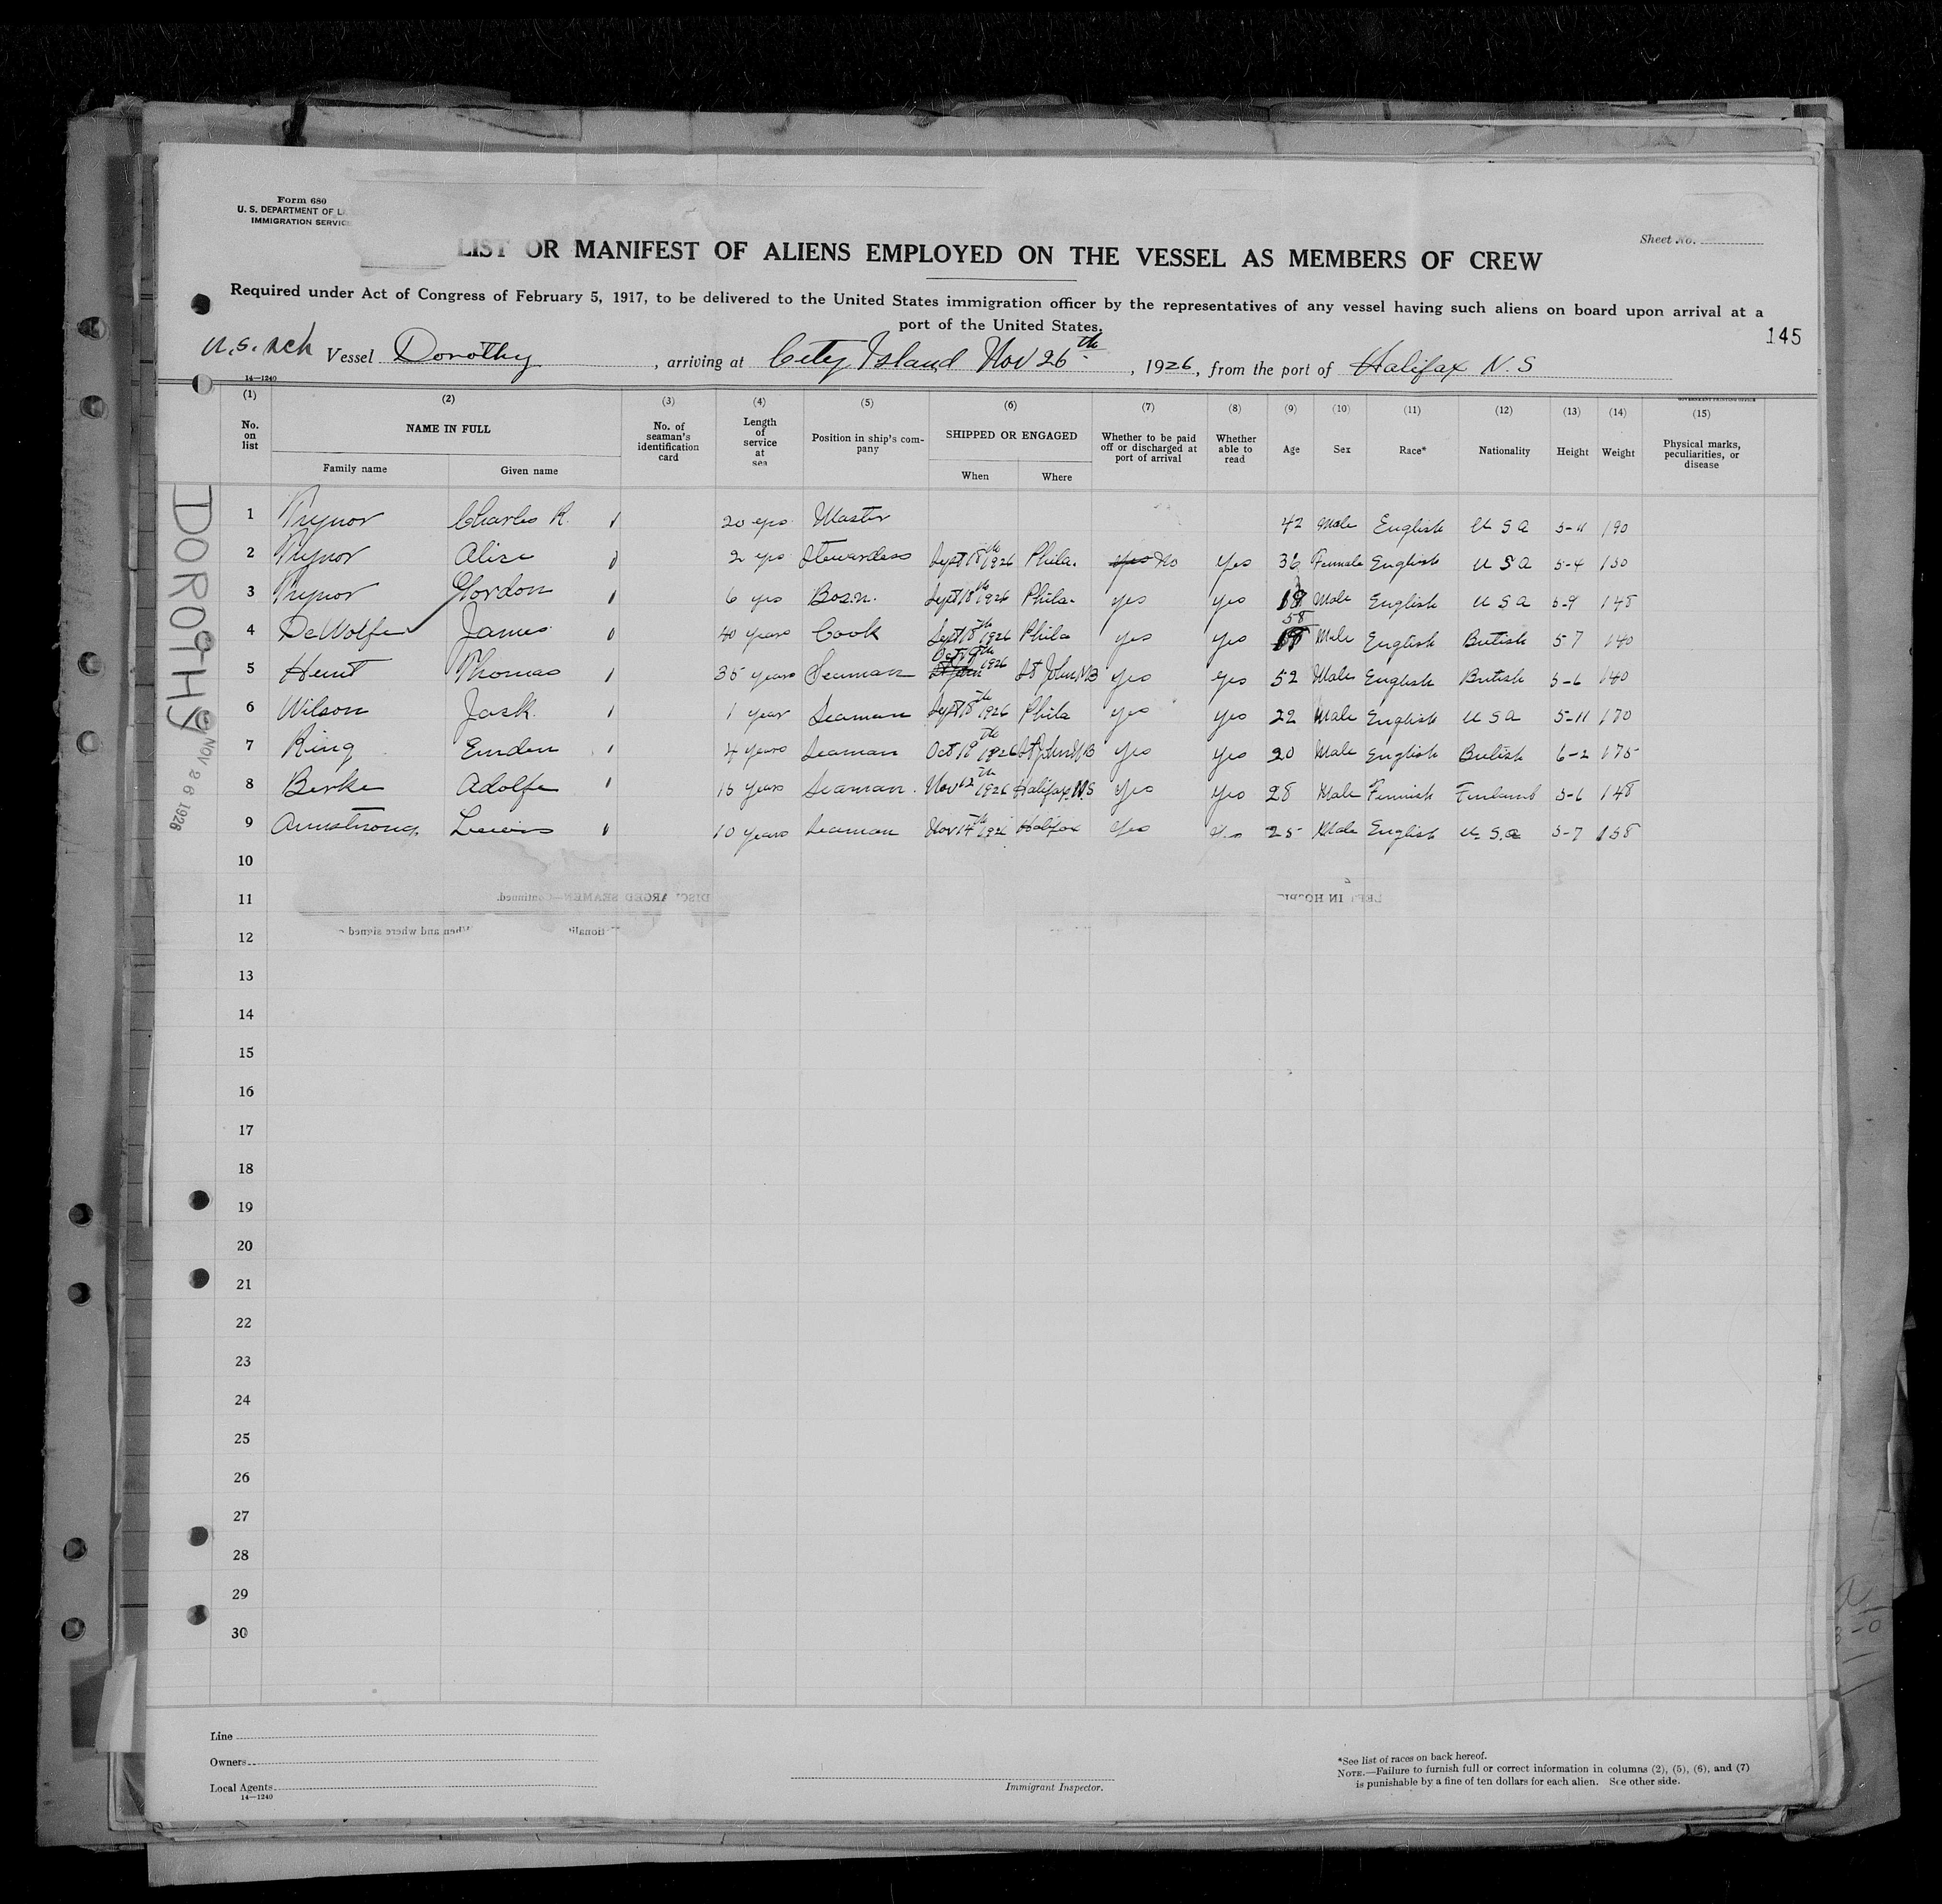 Form 680
U. S. DEPARTMENT OF
IMMIGRATION SERVICE
Sheet No.
LIST OR MANIFEST OF ALIENS EMPLOYED ON THE VESSEL AS MEMBERS OF CREW
Required under Act of Congress of February 5, 1917, to be delivered to the United States immigration officer by the representatives of any vessel having such aliens on board upon arrival at a
port of the United States.
145
U.S. Sch Vessel Dorothy, arriving at City Island Nov 26th, 1926, from the port of Halifax N.S
14—1240
GOVERNMENT PRINTING OFFICE
(1) (2) (3) (4) (5) (6) (7) (8) (9) (10) (11) (12) (13) (14) (15)
No. on list NAME IN FULL No. of seaman's identification card Length of service at sea Position in ship's company SHIPPED OR ENGAGED Whether to be paid off or discharged at port of arrival Whether able to read Age Sex Race* Nationality Height Weight Physical marks, peculiarities, or disease
Family name Given name When Where
DOROTHY
NOV 26 1926
1 Charles R. 20 yrs Master 42 Male English U S A 5-11 190
2 2 yrs Stewardess Sept 18th 1926 Phila. yes No yes 36 Female English U S A 5-4 130
3 Gordon 6 yrs Bosn. Sept 18th 1926 Phila. yes yes 18 Male English U S A 5-9 148
4 DeWolfe James 40 years Cook Sept 18th 1926 Phila yes yes 58 Male English British 5 7 140
5 Hunt Thomas 35 years Seaman Oct 19th 1926 St John NB yes yes 52 Male English British 5-6 140
6 Wilson Jack 1 year Seaman Sept 18th 1926 Phila yes yes 22 Male English U S A 5-11 170
7 King Emden 4 years Seaman Oct 19th 1926 St John NB yes yes 20 Male English British 6-2 175
8 Berke Adolfe 15 years Seaman. Nov 12th 1926 Halifax N.S yes yes 28 Male Finnish Finland 5-6 148
9 Armstrong Lewis 10 years Seaman Nov 14th 1926 Halifax yes yes 25 Male English U.S.A 5-7 158
10
11
DISCHARGED SEAMEN—Continued.
LEFT IN
12
When and where signed
13
14
15
16
17
18
19
20
21
22
23
24
25
26
27
28
29
30
Line
Owners
Local Agents
14—1240
Immigrant Inspector.
*See list of races on back hereof.
NOTE.—Failure to furnish full or correct information in columns (2), (5), (6), and (7)
is punishable by a fine of ten dollars for each alien. See other side.